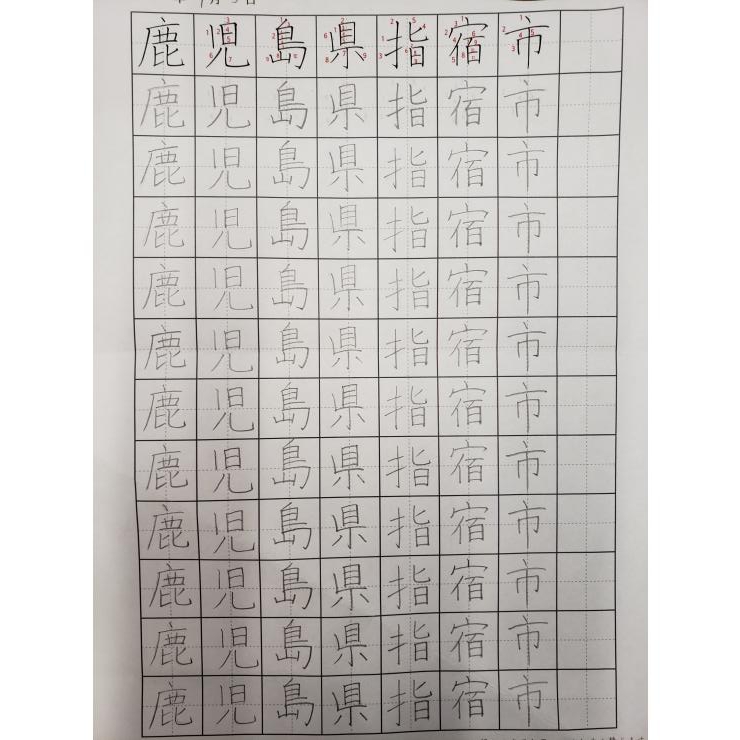 鹿児島県指宿市
鹿児島県指宿市
鹿児島県指宿市
鹿児島県指宿市
鹿児島県指宿市
鹿児島県指宿市
鹿児島県指宿市
鹿児島県指宿市
鹿児島県指宿市
鹿児島県指宿市
鹿児島県指宿市
鹿児島県指宿市